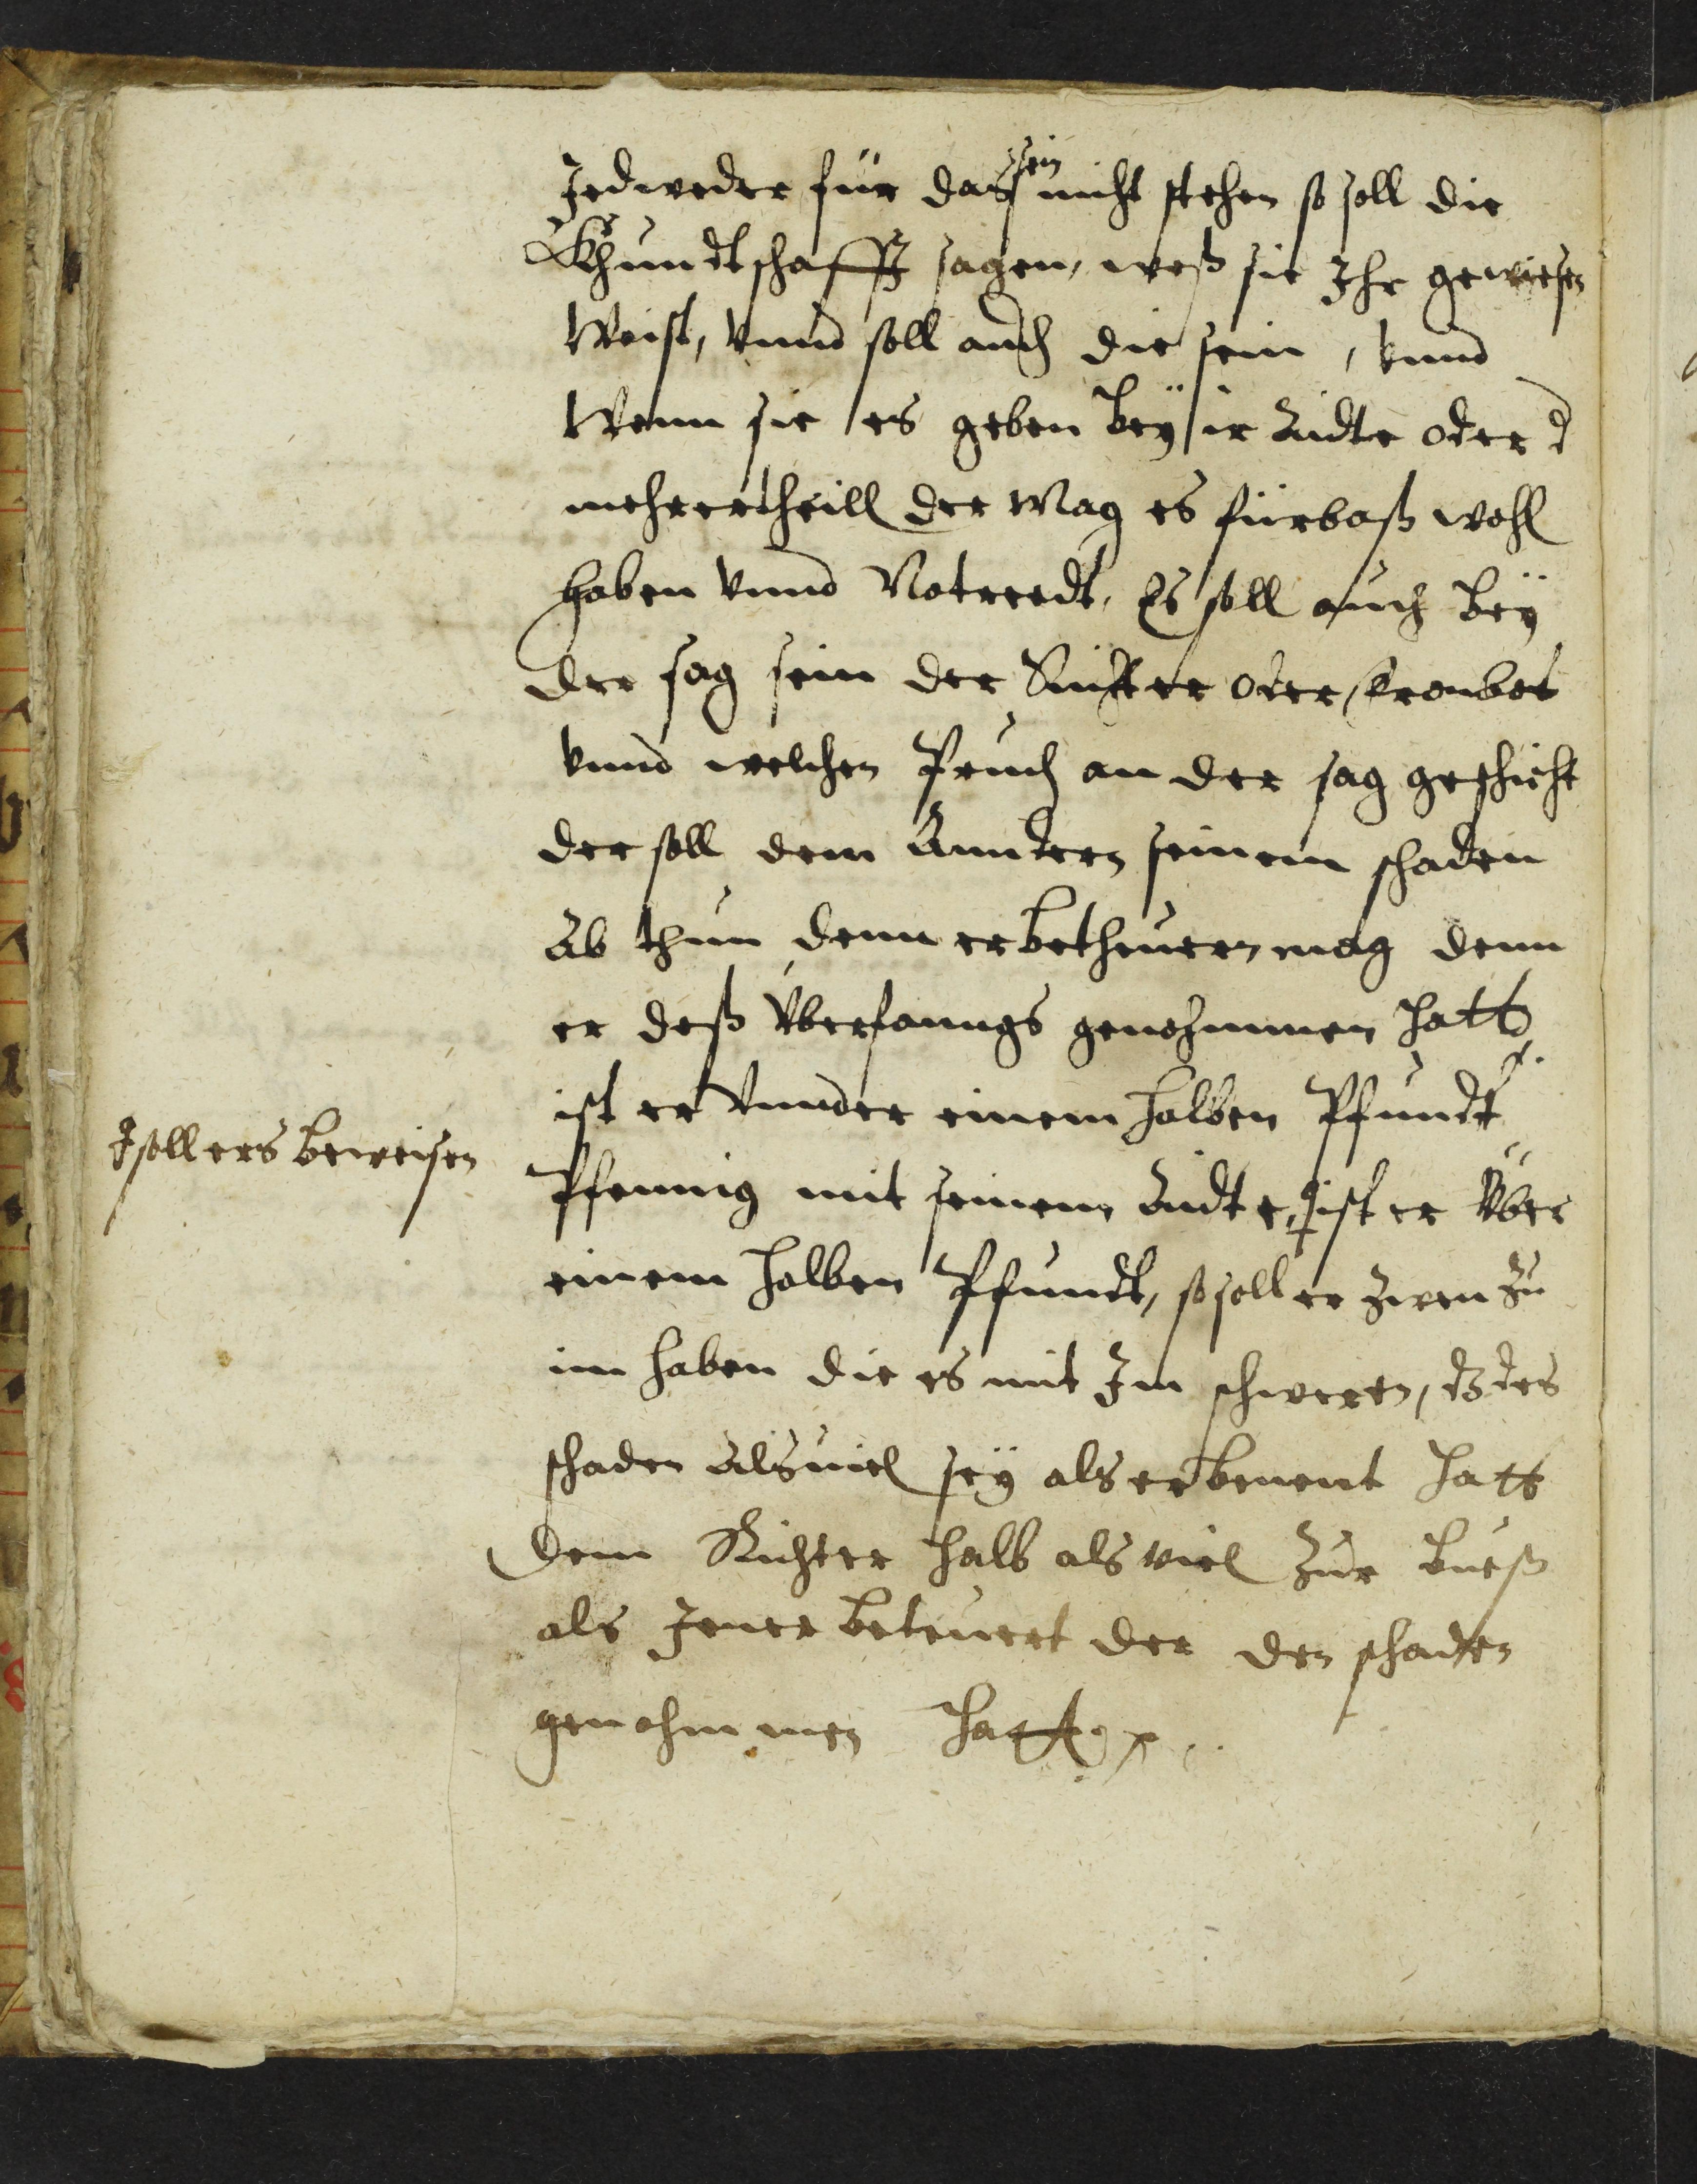 Jedweder für das sein nicht stehen so soll die
Khundtschafft sagen, weß sie Ihr gewiesen
Weist, vnnd soll auch die sein, vnnd
Wenn sie es geben beÿ ir Aidte oder d
mehrertheill der Mag es fürbaß wohl
haben vnnd Notreedt, Es soll auch beÿ
der sag sein der Richter oder Fronbot
vnnd welchen Pruch an der sag geschicht
der soll dem Anndern seinem schaden
Ab thun denn er betheuern mag denn
er deß Vberfanngs genohmmen hatt,
ist er Vnnder einem halben Pfundt
Pfennig mit seinem Aidte, ist er Vber
soll ers beweisen
einem halben Pfundt, so soll er zwen zu
im haben die es mit Im schweren, dz des
schaden Als viel seÿ als er benent hatt
dem Richter halb als viel zur bueß
als Jener beteuert der den schaden
genohmmen hatt